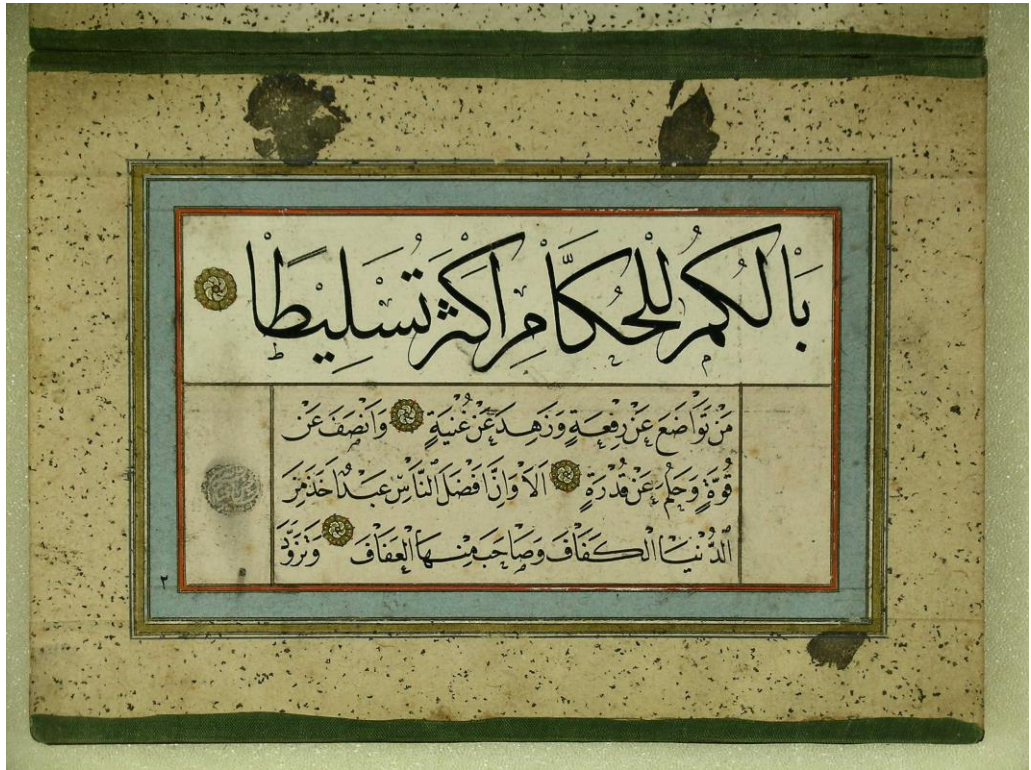 بَالُكُمْ لِلْحُكَّامِ اَكْثَرَ تَسْلِيطًا
مَنْ تَوَاضَعَ عَنْ رِفْعَةٍ وَزَهِدَ عَنْ غُنْيَةٍ وَانْصَفَ عَنْ
قُوَّةٍ وَحَلُمَ عَنْ قُدْرَةٍ اَلَا وَاِنَّ اَفْضَلَ النَّاسِ عَبْدٌ اَخَذَ مِنَ
الدُّنْيَا الْكَفَافَ وَصَاحَبَ مِنْهَا الْعَفَافَ وَتَزَوَّدَ
٢